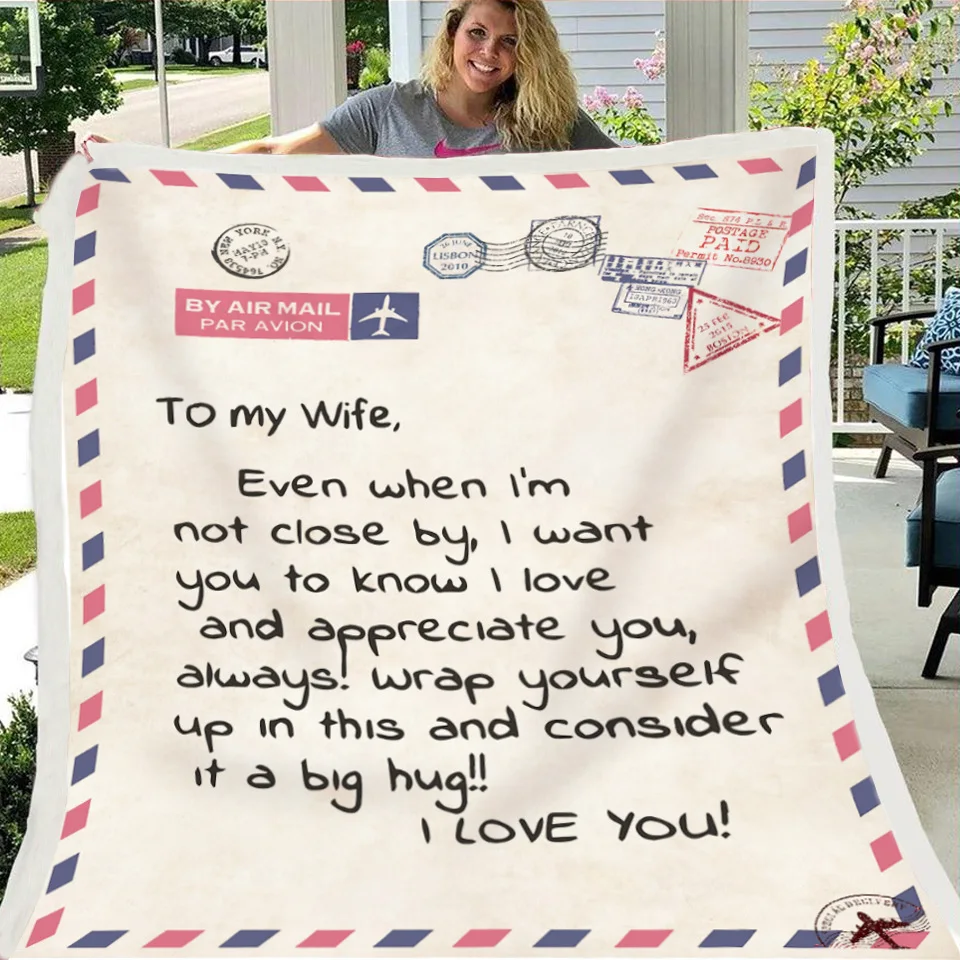 NEW YORK N.Y.
MAY19
7-PM
26 JUNE
LISBON
2010
POSTAGE
PAID
Permit No.8930
HONG-KONG
BY AIR MAIL
PAR AVION
25 FEB
2015
BOSTON
To my Wife,
Even when I'm
not close by, I want
you to know I love
and appreciate you,
always! wrap yourself
up in this and consider
it a big hug!!
I LOVE YOU!